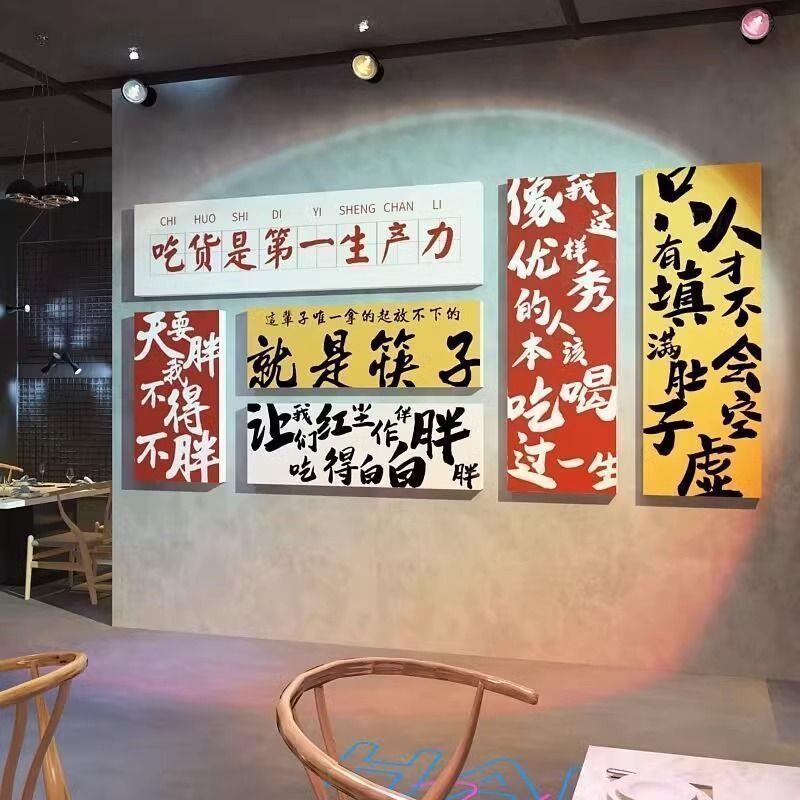 CHI HUO SHI DI YI SHENG CHAN LI
吃货是第一生产力
天要胖我不得不胖
这辈子唯一拿的起放不下的
就是筷子
让我们红尘作伴
吃得白白胖胖
像我这样优秀的人本该吃喝过一生
只有填满肚子
人才不会空虚